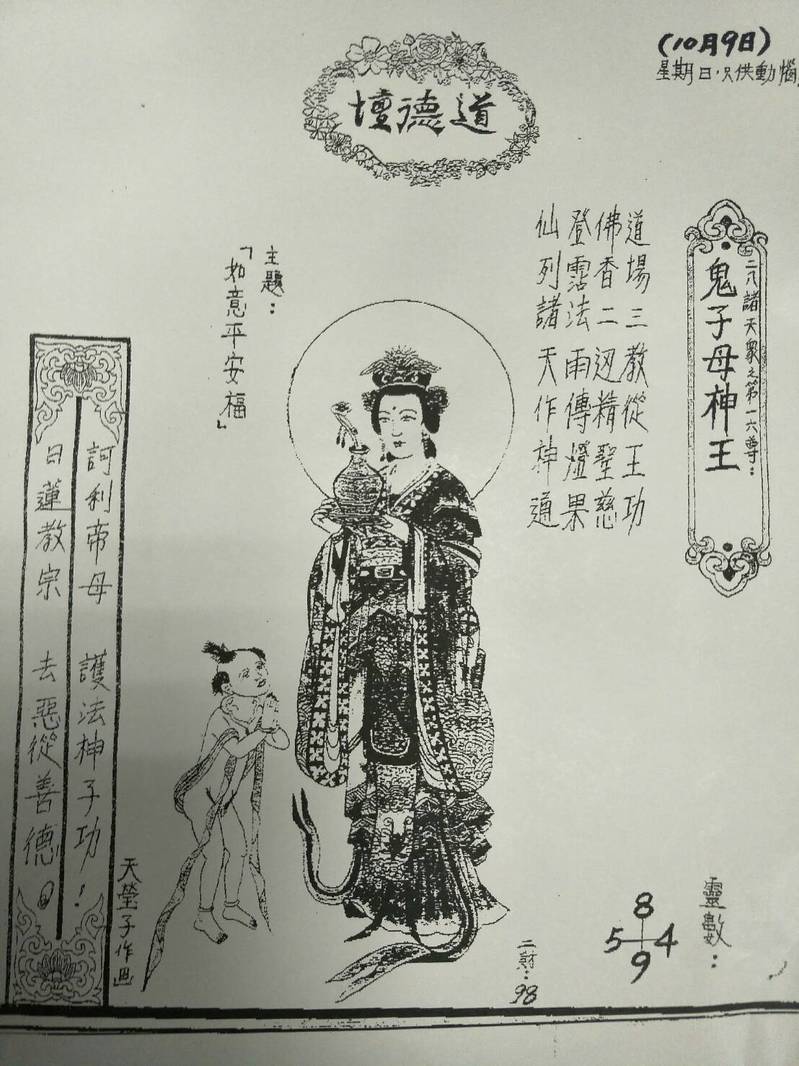 (10月9日)
星期日,只供動惱
道德壇
二八諸天眾之第一六尊:
鬼子母神王
道場三教從王功
佛香二迥精聖慈
登霑法雨傳燈果
仙列諸天作神通
主題:
「如意平安福」
訶利帝母 護法神子功!
日蓮教宗 去惡從善德。
天瑩子作画
靈數:
8
5 4
9
二財:98